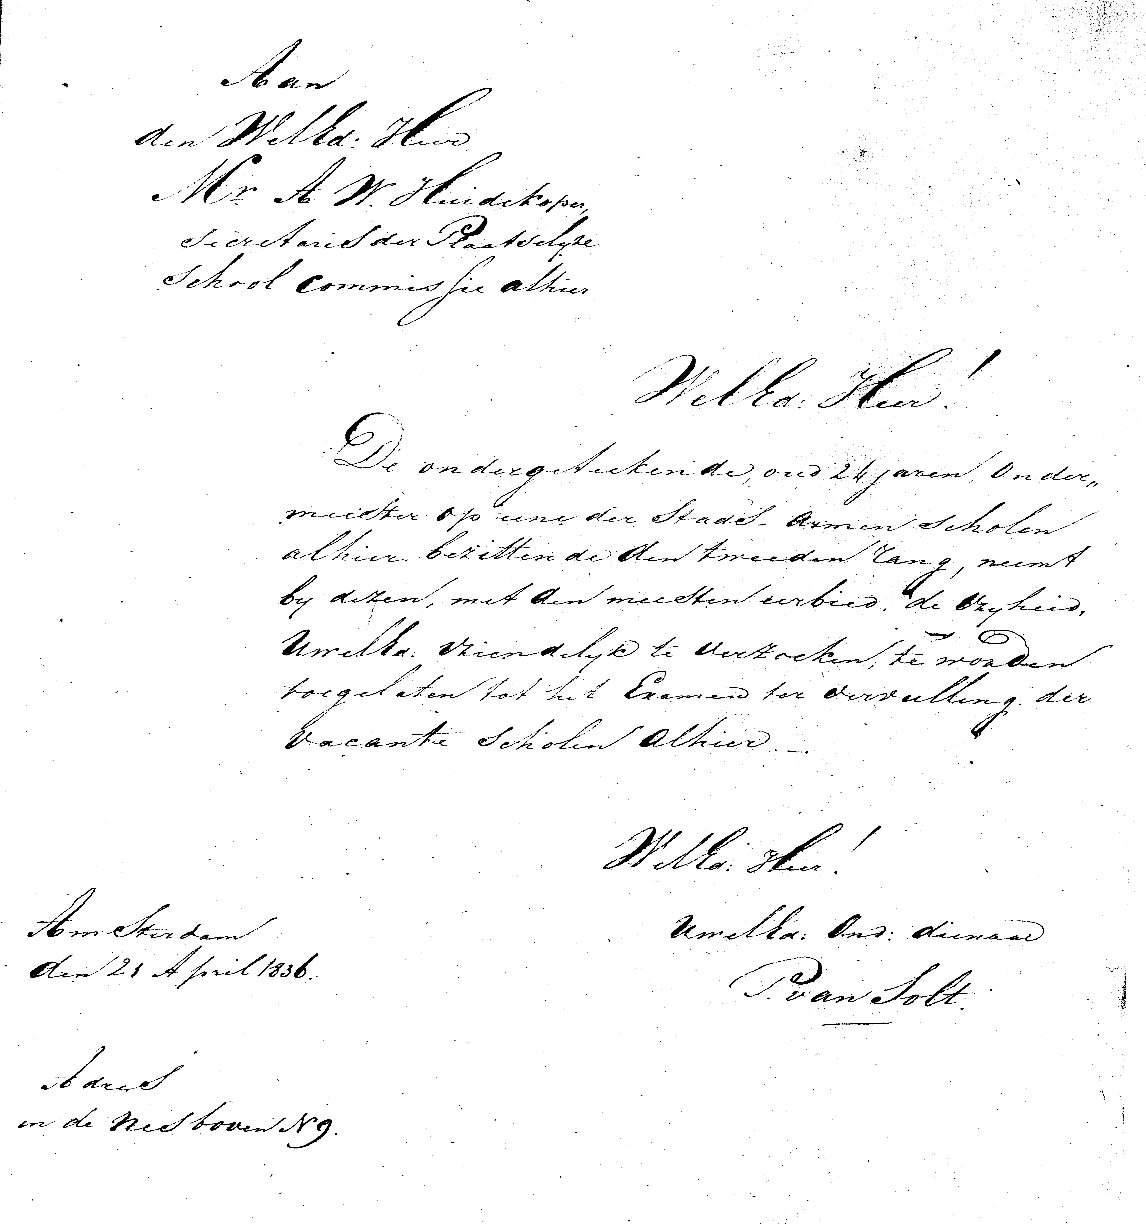 Aan
den WelEd: Heer
Mr. A W. Huidekoper,,
Secretaris der Plaatselyke
School commissie alhier
WelEd: Heer!
De ondergeteekende, oud 24 jaren, Onder,,
meester op eene der Stads-Armen scholen
alhier bezittende den tweeden rang, neemt
by dezen, met den meesten eerbied, de vryheid,
UwelEd: vriendelyk te verzoeken, te worden
toegelaten tot het Examen ter vervulling der
vacante scholen alhier.
WelEd: Heer!
UwelEd: Ond: dienaar
P. van Solt.
Amsterdam
den 21 April 1836.
Adres
in de Nes boven N 9.